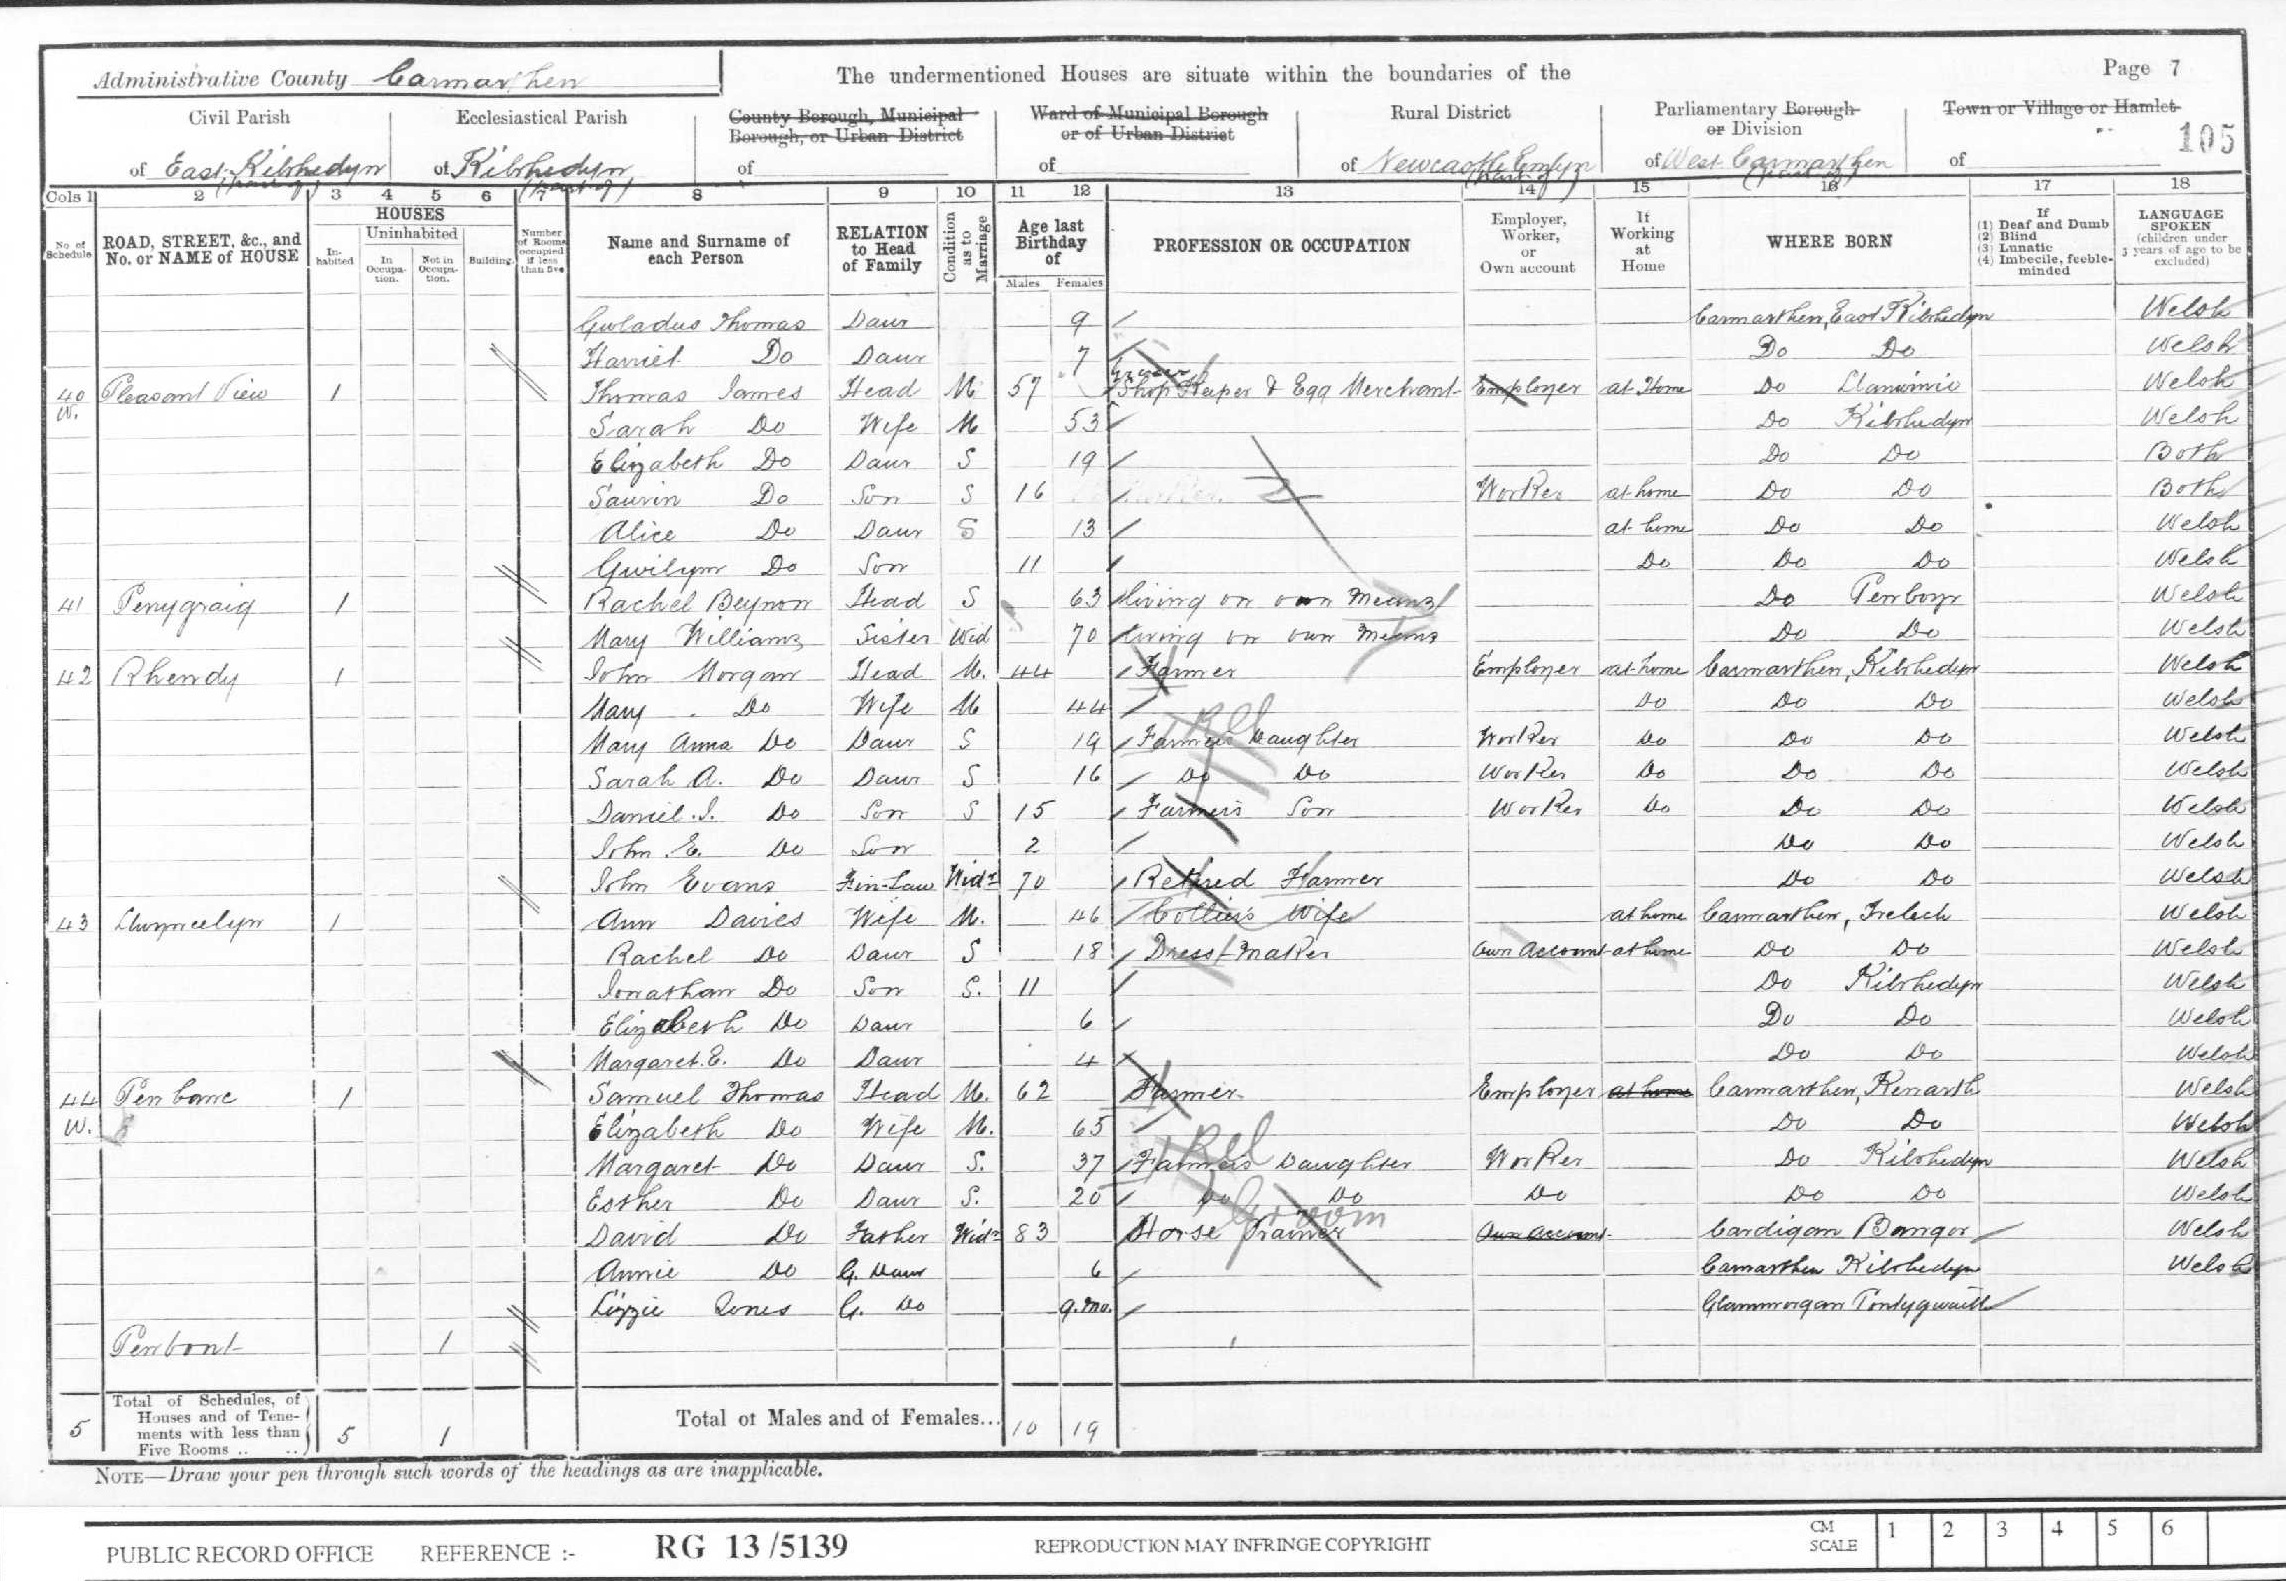 Administrative County Carmarthen
The undermentioned Houses are situate within the boundaries of the
Page 7
Civil Parish
Ecclesiastical Parish
County Borough, Municipal Borough, or Urban District
Ward of Municipal Borough or of Urban District
Rural District
Parliamentary Borough or Division
Town or Village or Hamlet
105
of East Kilrhedyn (part of)
of Kilrhedyn (part of)
of
of
of Newcastle Emlyn (part of)
of West Carmarthen (part of)
of
Cols 1 2 3 4 5 6 7 8 9 10 11 12 13 14 15 16 17 18
No of Schedule
ROAD, STREET, &c., and No. or NAME of HOUSE
HOUSES
Inhabited
Uninhabited
In Occupation.
Not in Occupation.
Building.
Number of Rooms occupied if less than five
Name and Surname of each Person
RELATION to Head of Family
Condition as to Marriage
Age last Birthday of
Males Females
PROFESSION OR OCCUPATION
Employer, Worker, or Own account
If Working at Home
WHERE BORN
If (1) Deaf and Dumb (2) Blind (3) Lunatic (4) Imbecile, feeble-minded
LANGUAGE SPOKEN (children under 3 years of age to be excluded)
Gwladus Thomas Daur 9 Carmarthen, East Kilrhedyn Welsh
Harriet Do Daur 7 Do Do Welsh
Grocer
40 Pleasant View 1 Thomas James Head M 57 Shop Keeper & Egg Merchant Employer at Home Do Llanwinio Welsh
W. Sarah Do Wife M 53 Do Kilrhedyn Welsh
Elizabeth Do Daur S 19 Do Do Both
Saurin Do Son S 16 Worker at home Do Do Both
Alice Do Daur S 13 at home Do Do Welsh
Gwilym Do Son 11 Do Do Do Welsh
41 Penygraig 1 Rachel Beynon Head S 63 living on own Means Do Penboyr Welsh
Mary Williams Sister Wid 70 living on own Means Do Do Welsh
42 Rhendy 1 John Morgan Head M. 44 Farmer Employer at home Carmarthen, Kilrhedyn Welsh
Mary Do Wife M 44 Do Do Do Welsh
Rel
Mary Anna Do Daur S 19 Farmer's Daughter Worker Do Do Do Welsh
Sarah A. Do Daur S 16 Do Do Worker Do Do Do Welsh
Daniel J. Do Son S 15 Farmer's Son Worker Do Do Do Welsh
John E. Do Son 2 Do Do Welsh
John Evans F-in-Law Widr 70 Retired Farmer Do Do Welsh
43 Llwyncelyn 1 Ann Davies Wife M. 46 Collier's Wife at home Carmarthen, Trelech Welsh
Rachel Do Daur S 18 Dress-maker Own Account at home Do Do Welsh
Jonathan Do Son S. 11 Do Kilrhedyn Welsh
Elizabeth Do Daur 6 Do Do Welsh
Margaret E. Do Daur 4 Do Do Welsh
44 1 Samuel Thomas Head M. 62 Farmer Employer at home Carmarthen, Kenarth Welsh
W. Elizabeth Do Wife M. 65 Do Do Welsh
Rel
Margaret Do Daur S. 37 Farmer's Daughter Worker Do Kilrhedyn Welsh
Esther Do Daur S. 20 Do Do Do Do Do Welsh
Groom
David Do Father Widr 83 Horse Trainer Own Account Cardigan Bangor Welsh
Annie Do G. Daur 6 Carmarthen Kilrhedyn Welsh
Lizzie Jones G. Do 9. mo. Glammorgan Pontygwaith
Penbont 1
5 Total of Schedules, of Houses and of Tenements with less than Five Rooms .. .. 5 1 Total of Males and of Females... 10 19
NOTE—Draw your pen through such words of the headings as are inapplicable.
PUBLIC RECORD OFFICE REFERENCE :- RG 13/5139 REPRODUCTION MAY INFRINGE COPYRIGHT CM SCALE 1 2 3 4 5 6